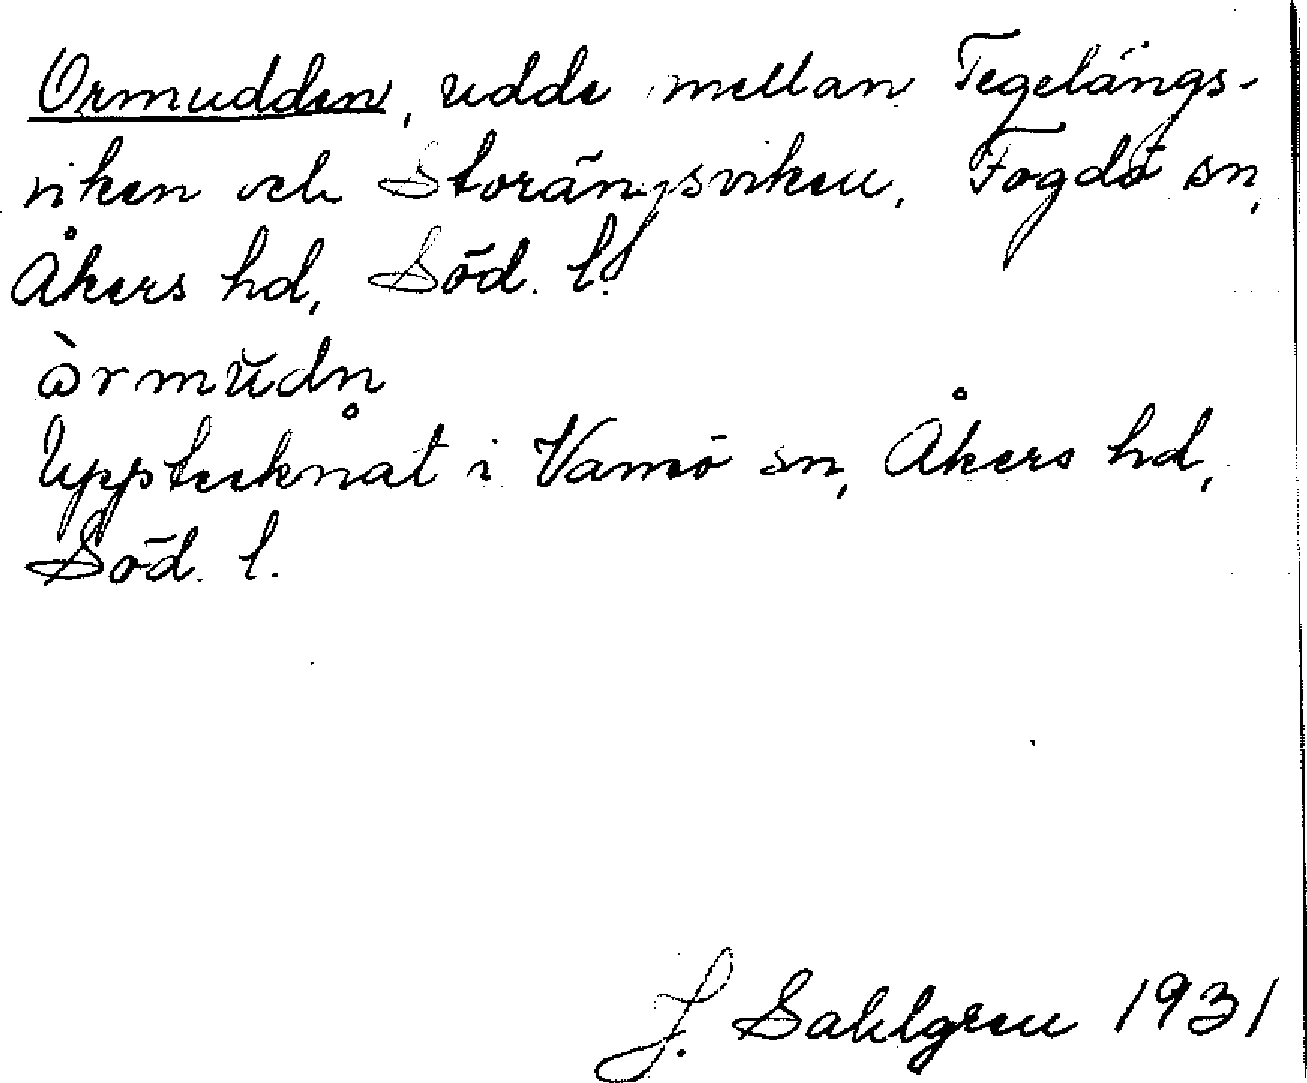 Ormudden, udde mellan Tegelängs-
viken och Storängsviken, Fogdö sn,
Åkers hd, Söd. l.
òrmŭdn̥
Upptecknat i Vansö sn, Åkers hd,
Söd. l.
J. Sahlgren 1931